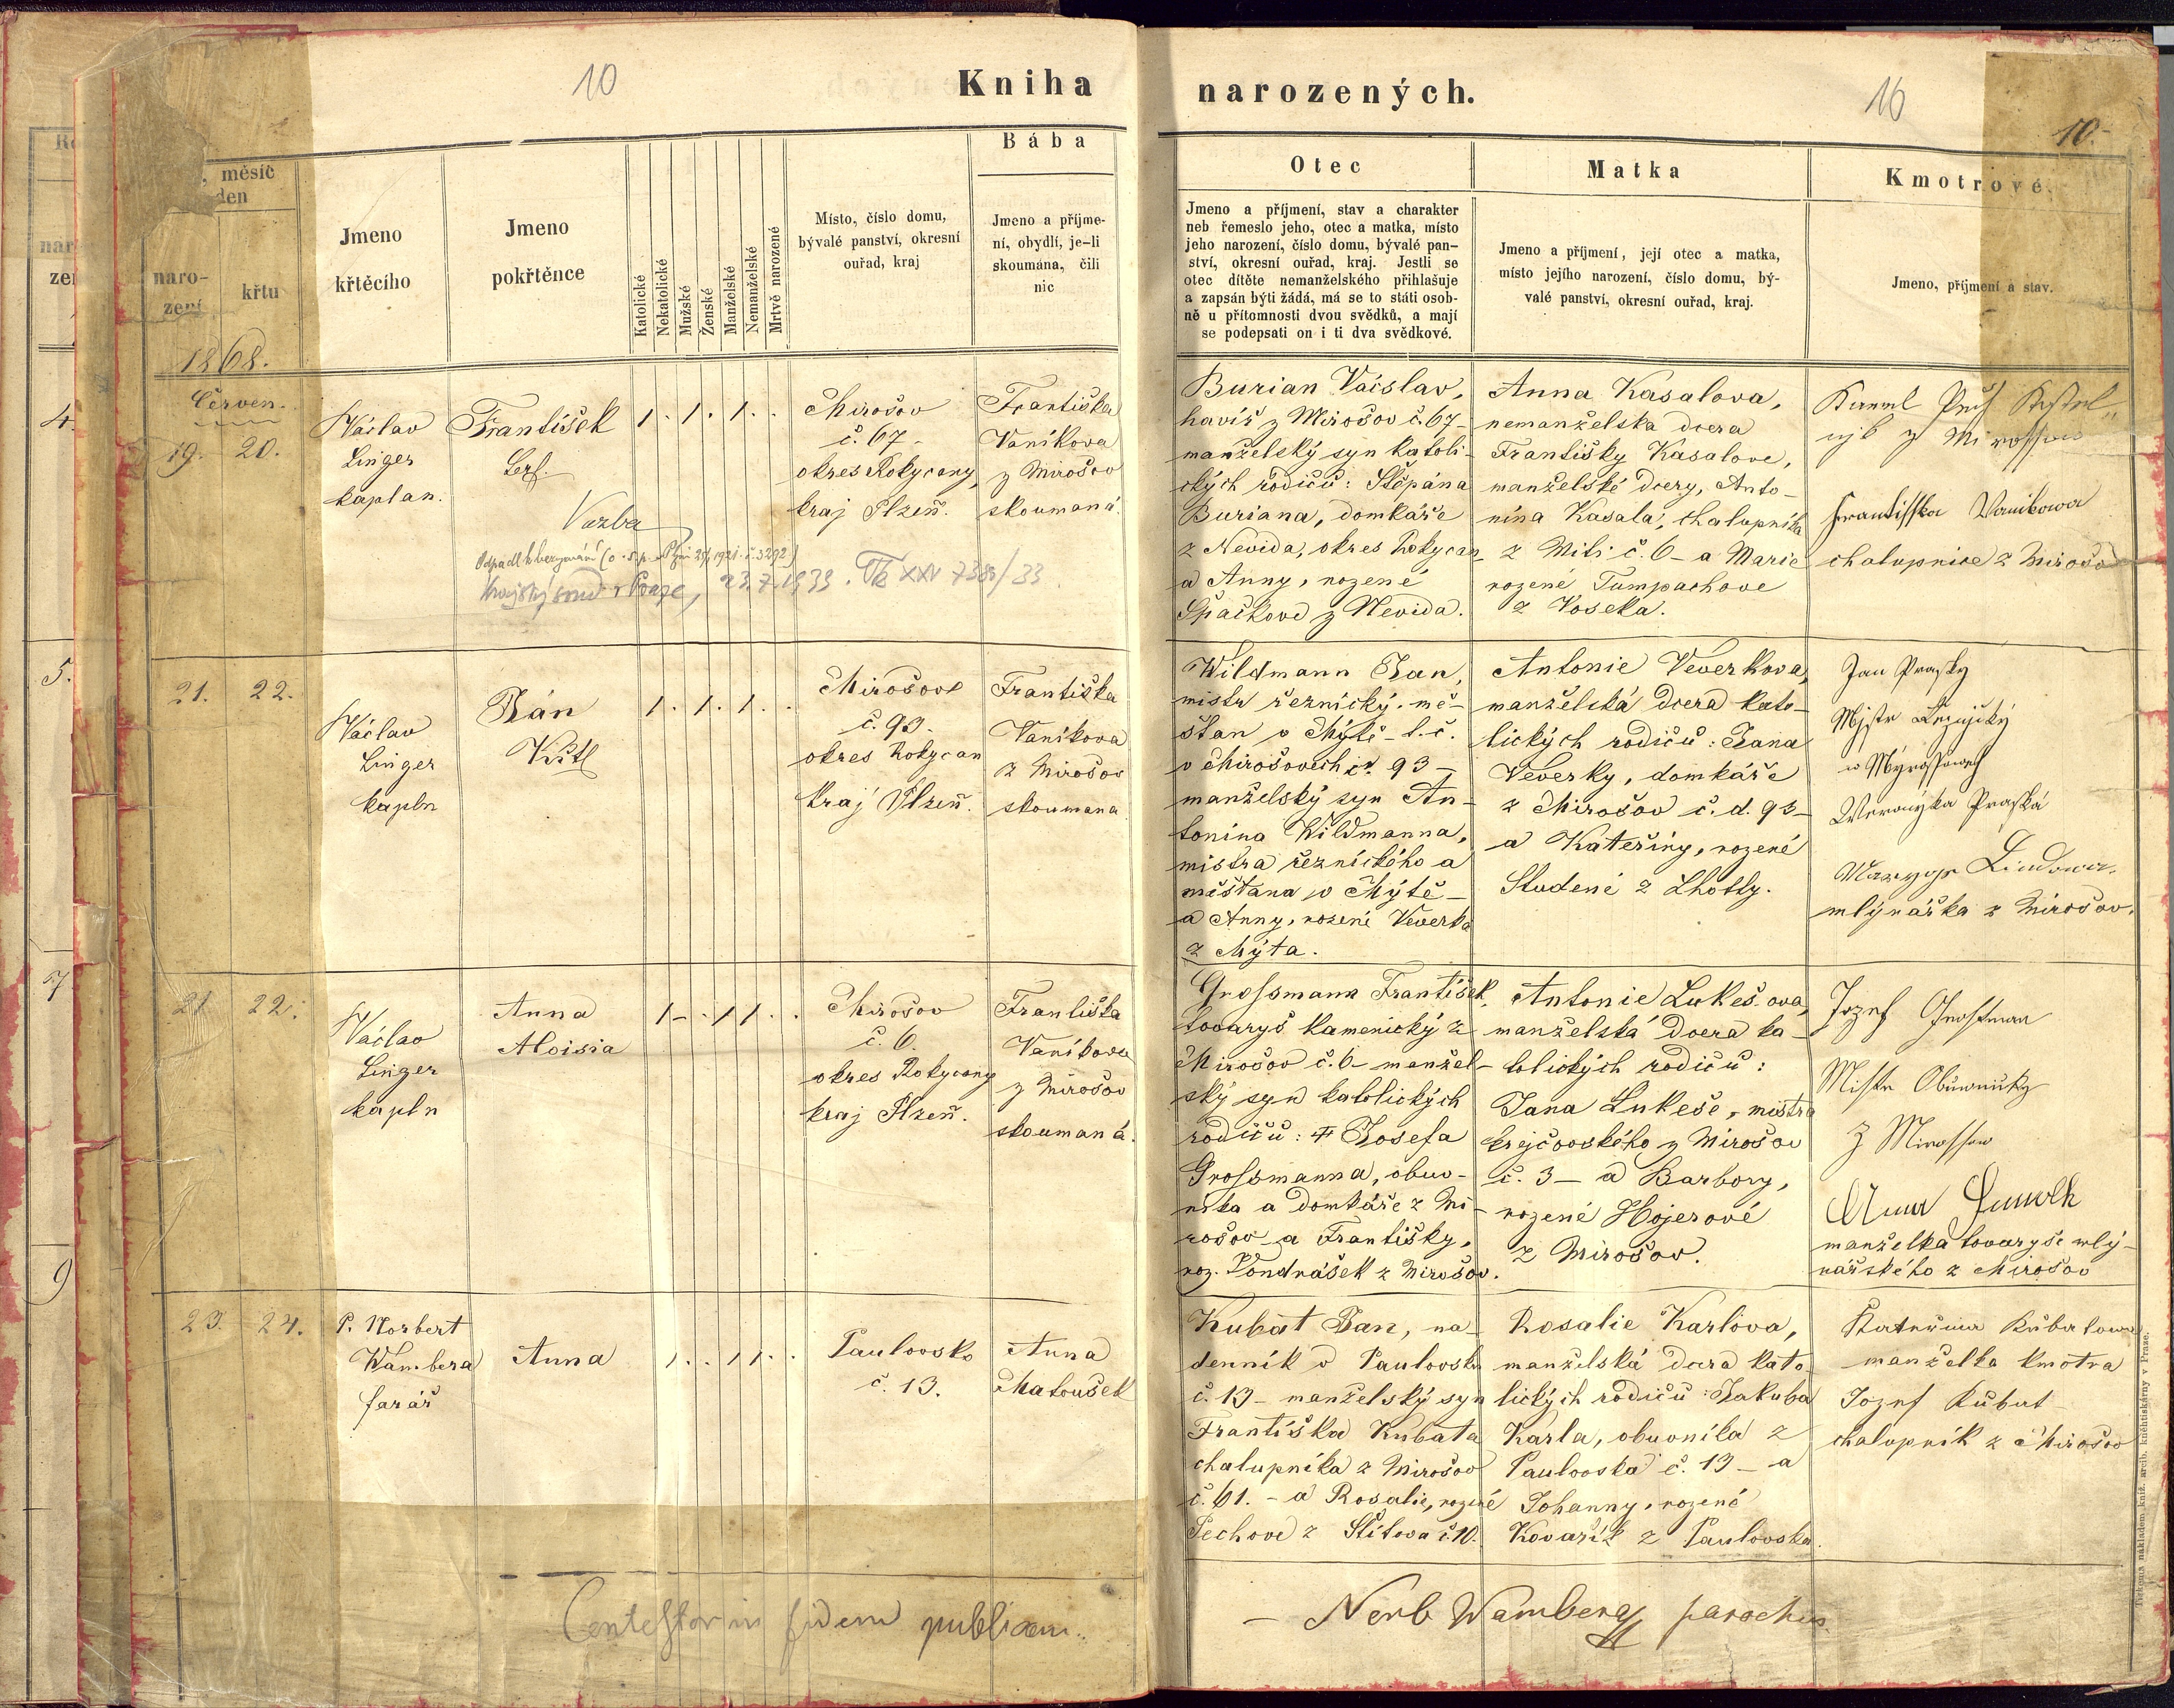 10
Kniha
narozených.
16
10.
měsíc
den
naro-
zení
křtu
Jmeno
křtěcího
Jmeno
pokřtěnce
Katolické
Nekatolické
Mužské
Ženské
Manželské
Nemanželské
Mrtvě narozené
Místo, číslo domu,
bývalé panství, okresní
ouřad, kraj
Bába
Jmeno a příjme-
ní, obydlí, je-li
skoumána, čili
nic
Otec
Jmeno a příjmení, stav a charakter
neb řemeslo jeho, otec a matka, místo
jeho narození, číslo domu, bývalé pan-
ství, okresní ouřad, kraj. Jestli se
otec dítěte nemanželského přihlašuje
a zapsán býti žádá, má se to státi osob-
ně u přítomnosti dvou svědků, a mají
se podepsati on i ti dva svědkové.
Matka
Jmeno a příjmení, její otec a matka,
místo jejího narození, číslo domu, bý-
valé panství, okresní ouřad, kraj.
Kmotrové.
Jmeno, příjmení a stav.
1868.
Červen.
19. 20.
Václav
Linger
kaplan.
František
Vazba
Krajský soud v Praze, 23.7.1939. Tk XXV 738/33
1 . 1 . 1 . .
Mirošov
č. 67 -
okres Rokycany,
kraj Plzeň.
Františka
Vaníkova
z Mirošov
skoumaná.
Burian Václav,
havíř z Mirošov č. 67 -
manželský syn katoli-
ckých rodičů: Štěpána
Buriana, domkáře
z Nevida, okres Rokycan
a Anny, rozené
Špačkové z Nevida.
Anna Kasalova,
nemanželska dcera
Františky Kasalove,
manželské dcery, Anto-
nína Kasala, chalupníka
z Miti č. 6 - a Marie
rozené Tumpachove
z Voseka.
z Mirossow
Frantisska Wanikowa
chalupnice z Mirošov
21. 22.
Václav
Linger
kapln
Ján
1 . 1 . 1 . .
Mirošov
č. 93.
okres Rokycan
kraj Plzeň.
Františka
Vaníkova
z Mirošov
skoumana
Wildmann Jan,
mistr řeznický. mě-
štan v Mýtě - t. č.
v Mirošovech č. 93 -
manželský syn An-
tonína Wildmanna,
mistra řeznického a
měštana v Mýtě -
a Anny, rozené Veverka
z Mýta.
Antonie Veverkova,
manželská dcera kato-
lických rodičů: Jana
Veverky, domkáře
z Mirošov č. d. 93 -
a Kateřiny, rozené
Studené z Lhotty.
Jan Prasky
Mystr
w Myrossowech
Weronyka Praská
mlynářka z Mirošov.
21 22.
Václav
Linger
kapln
Anna
Aloisia
1 - . 1 1 . .
Mirošov
č. 6.
okres Rokycany
kraj Plzeň.
Františka
Vaníkova
z Mirošov
skoumaná.
Grossmann František,
tovaryš kamenický z
Mirošov č. 6 - manžel-
ský syn katolických
rodičů: Josefa
Grossmanna, obuv-
nika a domkáře z Mi-
rošov a Františky,
roz. Vondrášek z Mirošov.
Antonie Lukeš.ova,
manželská dcera ka-
tolických rodičů:
Jana Lukeše, mistra
krejčovského z Mirošov
č. 3 - a Barbory,
rozené Hojerové
z Mirošov.
Jozef Grosman
Mistr Obuwnicky
z Mirossow
manželka tovaryše mlý-
nářského z Mirošov
23. 24.
P. Norbert
Wambera
farář
Anna
1 . . 1 1 . .
Paulovsko
č. 13.
Anna
Matoušek
Kubat Jan, na-
denník v Paulovsku
č. 13 - manželský syn
Františka Kubata
chalupníka z Mirošov
č. 61. - a Rosalie, rozené
Pechove z Štítova č 10.
Rosalie Karlova,
manželská dcera kato
lických rodičů: Jakuba
Karla, obuvníka z
Paulovska č. 13 - a
Johanny, rozené
Kovařík z Paulovska.
Kateřina Kubatowa
manželka kmotra
Jozef Kubat
chalupník z Mirošov
Contestor in fidem publicam.
- Norb Wambera parochus
Tiskem a nákladem kníž. arcib. knihtiskárny v Praze.